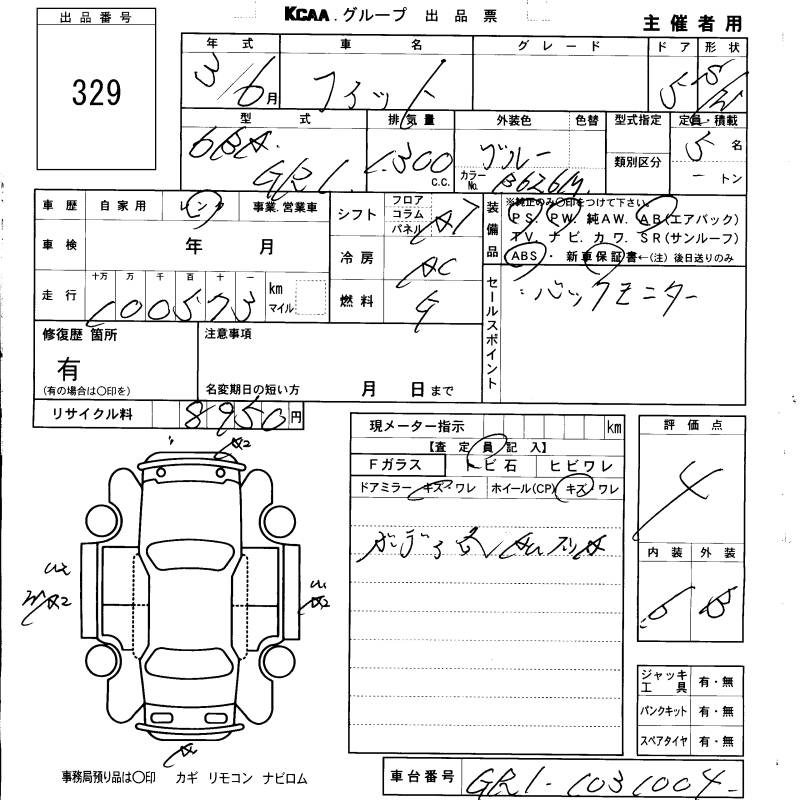 KCAA. グループ 出品票
主催者用
出品番号
329
年式 車名 グレード ドア 形状
3/6月 フィット 5 S/W
型式 排気量 外装色 色替 型式指定 定員・積載
6BA. GR1 1,300 C.C. ブルー 5名
カラーNo. B626M 類別区分 - トン
車歴 自家用 レンタ 事業.営業車
シフト フロア コラム パネル AT
装備品 ※純正のみ○印をつけて下さい。
PS. PW. 純AW. AB(エアバック)
TV. ナビ. カワ. SR(サンルーフ)
ABS・ 新車保証書←(注)後日送りのみ
車検 年 月
冷房 AC
走行 十万 万 千 百 十 一 km マイル
100573
燃料
セールスポイント
バックモニター
修復歴 箇所
有
(有の場合は○印を)
注意事項
名変期日の短い方 月 日まで
リサイクル料 8950円
現メーター指示 km
【査定員記入】
Fガラス トビ石 ヒビワレ
ドアミラー キズ・ワレ ホイール(CP) キズ・ワレ
評価点
4
内装 外装
B
A2
A2
A2
A
ジャッキ 工具 有・無
パンクキット 有・無
スペアタイヤ 有・無
事務局預り品は○印 カギ リモコン ナビロム
車台番号 GR1-1031004-